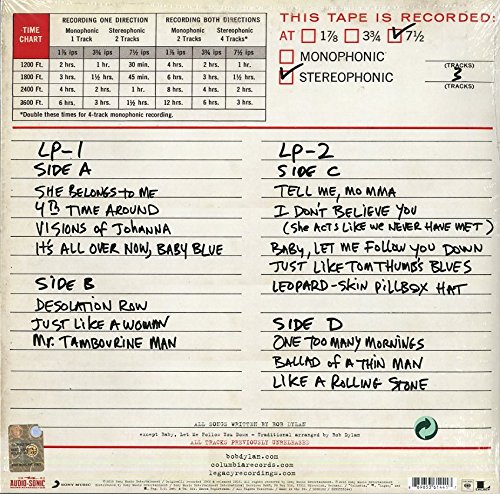 TIME CHART
RECORDING ONE DIRECTION
RECORDING BOTH DIRECTIONS
Monophonic 1 Track
Stereophonic 2 Tracks
Monophonic 2 Tracks
Stereophonic 4 Tracks*
1⅞ ips 3¾ ips 7½ ips 1⅞ ips 3¾ ips 7½ ips
1200 Ft. 2 hrs. 1 hr. 30 min. 4 hrs. 2 hrs. 1 hr.
1800 Ft. 3 hrs. 1½ hrs. 45 min. 6 hrs. 3 hrs. 1½ hrs.
2400 Ft. 4 hrs. 2 hrs. 1 hr. 8 hrs. 4 hrs. 2 hrs.
3600 Ft. 6 hrs. 3 hrs. 1½ hrs. 12 hrs. 6 hrs. 3 hrs.
*Double these times for 4-track monophonic recording.
THIS TAPE IS RECORDED:
AT 1⅞ 3¾ 7½
MONOPHONIC (TRACKS)
STEREOPHONIC 3 (TRACKS)
LP-1
SIDE A
SHE BELONGS TO ME
4TH TIME AROUND
VISIONS OF JOHANNA
IT'S ALL OVER NOW, BABY BLUE
SIDE B
DESOLATION ROW
JUST LIKE A WOMAN
MR. TAMBOURINE MAN
LP-2
SIDE C
TELL ME, MOMMA
I DON'T BELIEVE YOU
(SHE ACTS LIKE WE NEVER HAVE MET)
BABY, LET ME FOLLOW YOU DOWN
JUST LIKE TOM THUMB'S BLUES
LEOPARD-SKIN PILLBOX HAT
SIDE D
ONE TOO MANY MORNINGS
BALLAD OF A THIN MAN
LIKE A ROLLING STONE
ALL SONGS WRITTEN BY BOB DYLAN
except Baby, Let Me Follow You Down - Traditional arranged by Bob Dylan
ALL TRACKS PREVIOUSLY UNRELEASED
bobdylan.com
columbiarecords.com
legacyrecordings.com
AUDIO-SONIC
SONY MUSIC